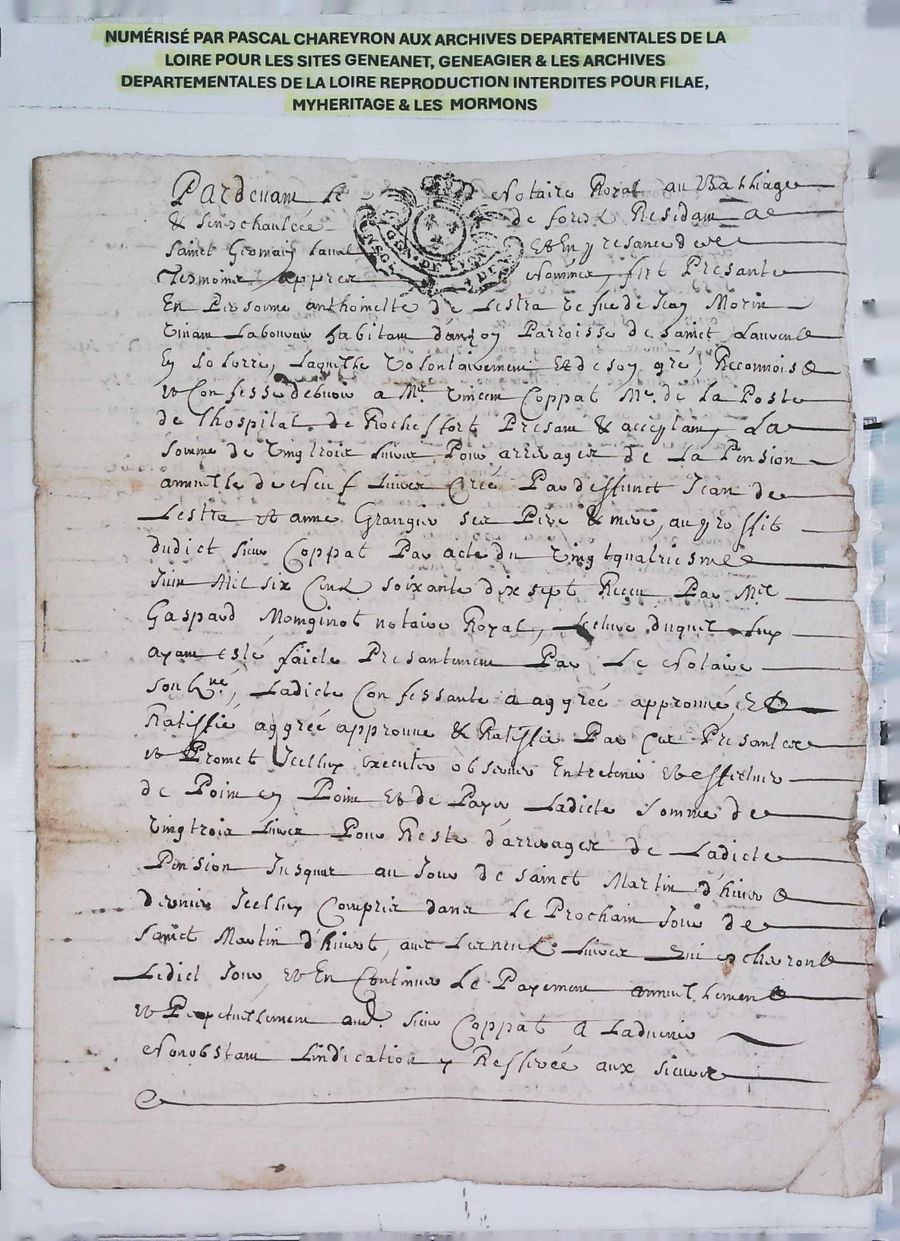 NUMÉRISÉ PAR PASCAL CHAREYRON AUX ARCHIVES DEPARTEMENTALES DE LA
LOIRE POUR LES SITES GENEANET, GENEAGIER & LES ARCHIVES
DEPARTEMENTALES DE LA LOIRE REPRODUCTION INTERDITES POUR FILAE,
MYHERITAGE & LES MORMONS
Pardevant le Notaire Royal au Balliage
& senechaulcée de forez Residant a
Sainct Germain Laval Et En presance de
tesmoins appres Nommes, fut Presante
En Personne anthoinette de Lestra vefue de Jean Morin
vivant Laboureur habitant Parroisse de sainct Laurent
En solorre, Laquelle volontairement Et de soy gré, Reconnoist
et Confesse debvoir a Mre. Vincent Coppat Me. de La Poste
de Lhospital de Rocheffort Presant & acceptant, La
somme de vingtrois livres Pour arrerages de La Pension
annuelle de Neuf Livres Créé Par deffunct Jean de
Lestra et anne Grangier ses Pere & mere, au proffit
dudict sieur Coppat Par acte du vingtquatriesme
Juin Mil six Cent soixante dix sept Receu Par Me
Gaspard Monginot notaire Royal, Lecture duquel Luy
ayant esté faicte Presantement Par Le Notaire
soubné, Ladicte Confessante a aggréé approuué, &
Ratiffié aggrée approuue & Ratiffie Par Ces Presantes
et Promet Icelluy executer observer Entretenir et effectuer
de Point en Point Et de Payer Ladicte somme de
vingtrois Livres Pour Reste d'arrerages de Ladicte
Pension Jusques au Jour de sainct Martin d'hiver
dernier Icelluy Compris dans Le Prochain Jour de
sainct Martin d'hivert, avec Les neuf Livres qui escheront
Ledict Jour, et En Continuer Le Payement annuellement
et Perpetuellement aud. sieur Coppat a Ladvenir
Nonobstant Lindication y Resservée aux sieurs